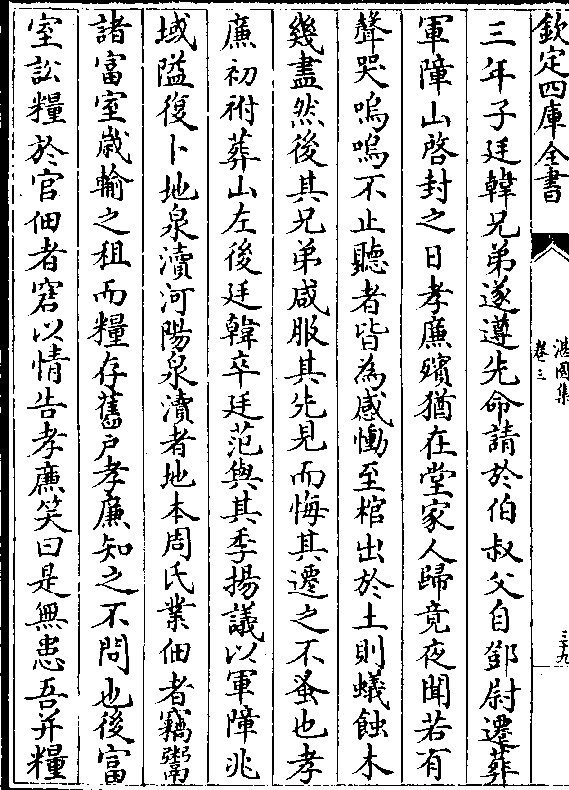 欽定四庫全書
澹園集
卷三
三十九
三年子廷韓兄弟遂遵先命請於伯叔父自鄧尉遷葬
軍障山啓封之日孝廉殯猶在堂家人歸竟夜聞若有
聲哭嗚嗚不止聽者皆為感慟至棺出於土則蟻蝕木
幾盡然後其兄弟咸服其先見而悔其遷之不蚤也孝
廉初祔葬山左後廷韓卒廷范與其季揚議以軍障兆
域隘復卜地泉瀆河陽泉瀆者地本周氏業佃者竊鬻
諸富室歲輸之租而糧存舊户孝廉知之不問也後富
室訟糧於官佃者窘以情告孝廉笑曰是無患吾并糧